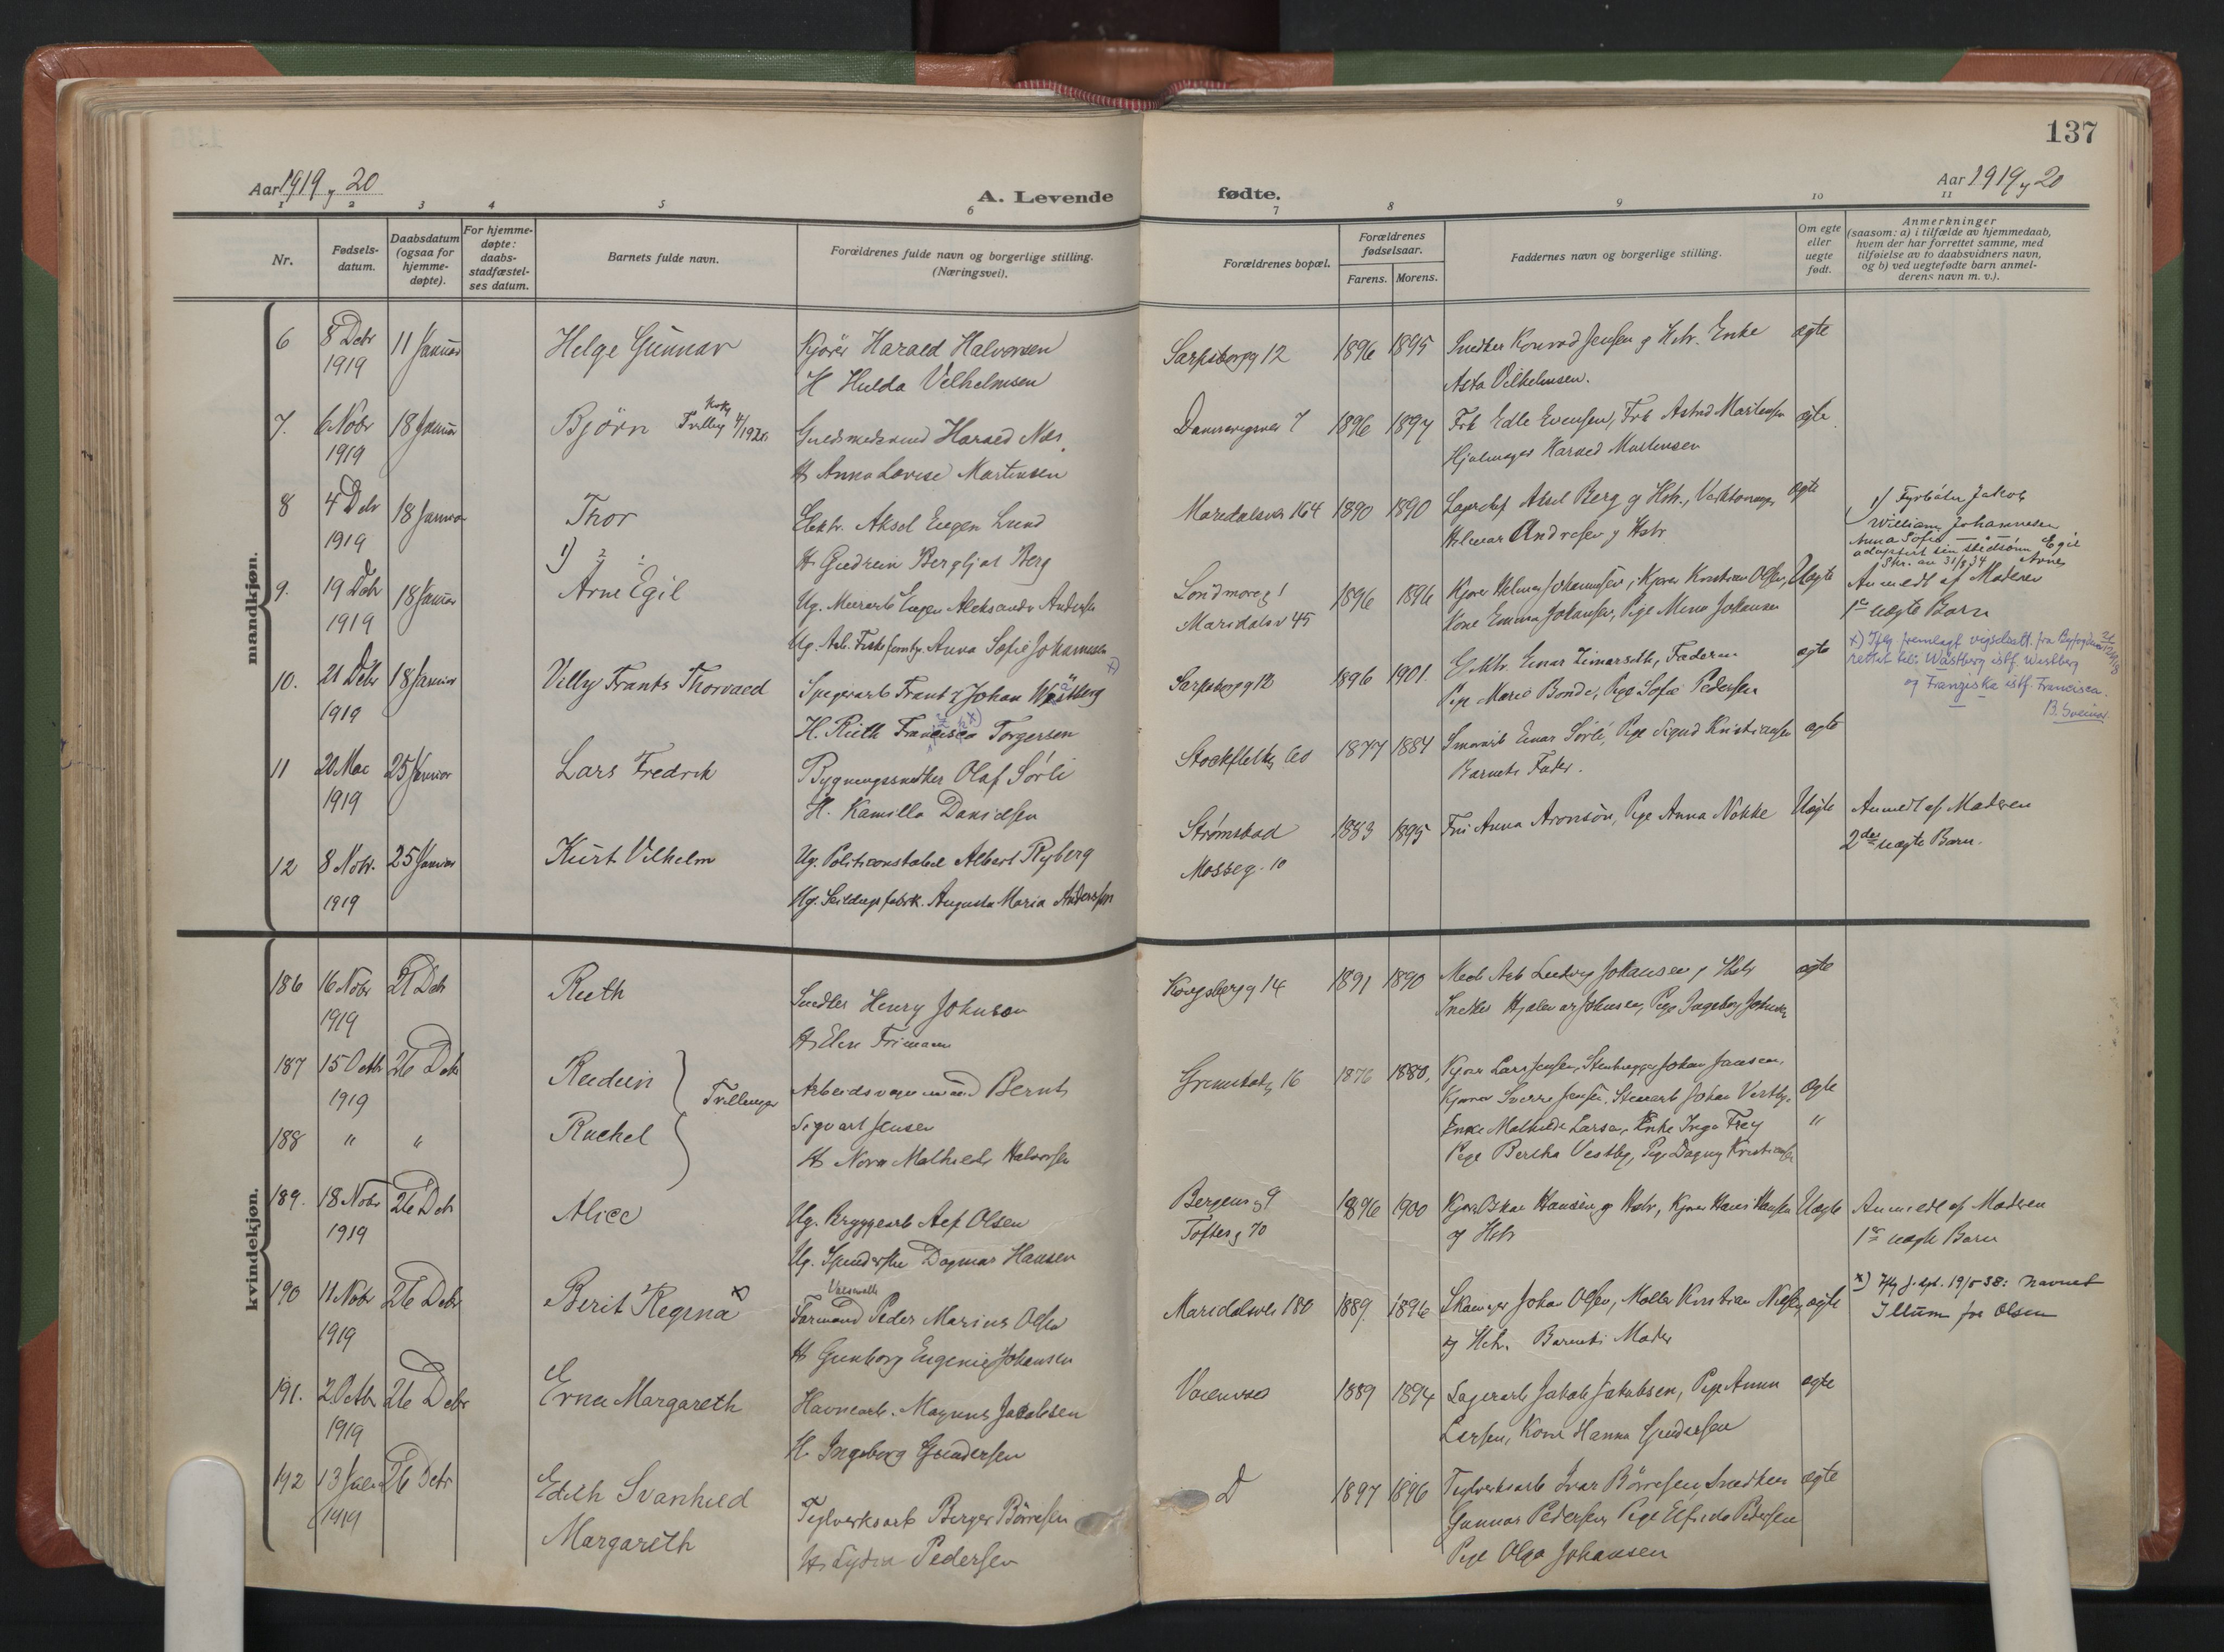 137
Aar 1919 og 20
A. Levende
fødte.
Aar 1919 og 20
1 2 3 4 5 6 7 8 9 10 11
Nr.
Fødsels-
datum.
Daabsdatum
(ogsaa for
hjemme-
døpte).
For hjemme-
døpte:
daabs-
stadfæstel-
ses datum.
Barnets fulde navn.
Forældrenes fulde navn og borgerlige stilling.
(Næringsvei).
Forældrenes bopæl.
Forældrenes
fødselsaar.
Farens. Morens.
Faddernes navn og borgerlige stilling.
Om egte
eller
uegte
født.
Anmerkninger
(saasom: a) i tilfælde av hjemmedaab,
hvem der har forrettet samme, med
tilføielse av to daabsvidners navn,
og b) ved uegtefødte barn anmel-
derens navn m. v.).
mandkjøn.
6 8 Debr 11 Januar Helge Gunnar Kjører Harald Halvorsen Sarpsborgg 12 1896 1895 Snedker Konrad Jensen og Hstr. Enke ægte
1919 H Hulda Vilhelmsen Asta Vilhelmsen.
7. 6 Nobr 18 Januar Bjørn Harald Næs 1896 1897 Frk Edle Evensen, Frk Astrid Martinsen ægte
1919 H Anna Lovise Martinsen Harald Martinsen
8 4 Debr 18 Januar Thor Elektr. Aksel Eugen Lund Maridalsvei 164 1890 1890 Aksel Berg og Hstr., ægte
1919 H Gudrun Bergljot Berg Hilmar Andresen og Hstr
1) Fyrbøter Jakob
William Johannesen
Anna Sofie
adoptert sin stedsønn Egil
Skr. av 31/8 34 Arnes
9. 19 Debr 18 Januar 1) Arne Egil Ug. Murarb Eugen Aleksander Andersen 1896 1896 Kjører Hilmar Johannesen, Kjører Kristian Olsen, Uægte Anmeldt af Moderen
1919 Ug. Arb. Anna Sofie Johannesen Maridalsv 45 Kone Emma Johansen, Pige Mina Johansen 1e uægte Barn
10. 21 Debr 18 Januar Villy Frants Thorvald Johan Wästberg x) Sarpsborgg 12 1896 1901. Faderen ægte
1919 H. Ruth Francisca Torgersen Pige Marie Bonde, Pige Sofie Pedersen
x) Iflg. fremlagt vigselsatt. fra
rettet til: Wästberg istf. Westberg
og Franziska istf. Francisca.
11 20 Mai 25 Januar Lars Fredrik Bygningssnedker Olaf Sørli 1877 1884 Einar Sørli, Pige Sigrid Kristiansen ægte
1919 H. Kamilla Danielsen Barnets Fader.
12 8 Nobr. 25 Januar Kurt Vilhelm Ug. Politiconstabel Albert Ryberg Strømstad 1883 1895 Fru Anna Aronsøn, Pige Anna Nokke Uægte Anmeldt af Moderen
1919 Ug. Augusta Maria Anderssen Mosseg. 10 2det uægte Barn.
kvindekjøn.
186 16 Nobr 21 Deb Ruth Snedker Henry Johnson Kongsbergg 14 1891 1890 Ludvig Johansen og Hstr ægte
1919 H Elen Frimann Snedker Hjalmar Johnsen, Pige Ingeborg Johnsen
187 15 Octbr 26 Deb Reidun Tvillinger Bernt Grimstadg 16 1876 1880. Kjører Lars Jensen, Stenhugger Johan Jansen,
1919 Sigvart Jensen Kjører Sverre Jensen, Stenarb Johan Vestby, ægte
188 " " Rachel H Nora Mathilde Halvorsen Enke Mathilde Larsen, Enke Inga Frey "
Pige Bertha Vestby, Pige Dagny Kristiansen
189. 18 Nobr 26 Deb Alice Ug. Bryggearb Alf Olsen Bergensg 9 1896 1900 Kjører Oskar Hansen og Hstr, Kjører Hans Hansen Uægte Anmeldt af Moderen
1919 Ug. Spinderske Dagmar Hansen Toftesg 70 og Hstr 1e uægte Barn
190 11 Nobr 26 Debr Berit Regina x) Formand Peder Marius Olsen Maridalsvei 180 1889. 1896 Johan Olsen, Møller Kristian Nielsen ægte
x) Iflg j. dpt. 19/5 38: navnet
Illum for Olsen
1919 H Gunborg Eugenie Johansen og Hstr. Barnets Moder
191. 2 Octbr 26 Debr Erna Margareth Havnearb. Magnus Jacobsen 1889 1894 Lagerarb Jakob Jakobsen, Pige Anna ægte
1919 H. Ingeborg Gundersen Larsen, Kone Hanna Gundersen
192 26 Debr Edith Svanhild Teglverksarb Birger Børresen D 1897 1896 Teglverksarb Ivar Børresen, Snedker ægte
1919 Margareth H Lydia Pedersen Gunnar Pedersen Pige Elfrida Pedersen
Pige Olga Johansen